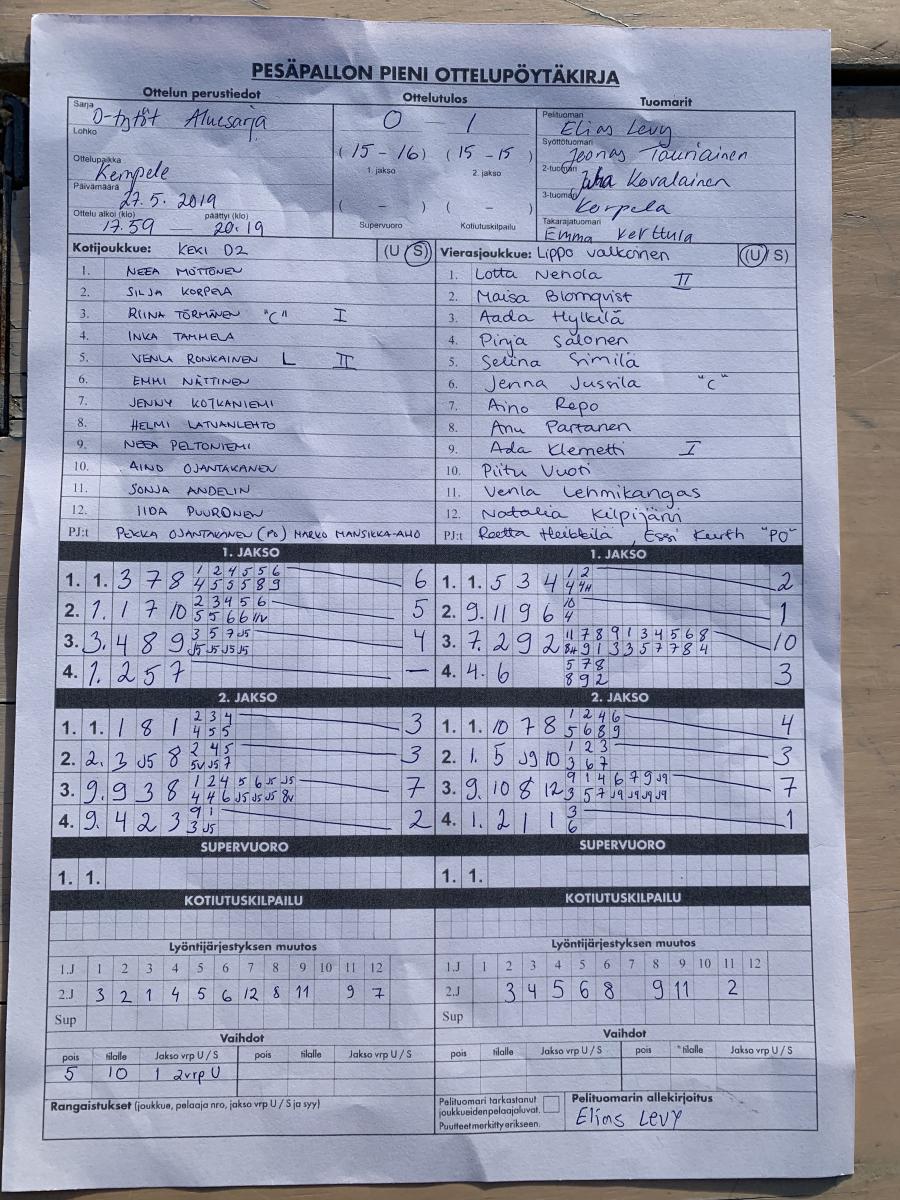 PESÄPALLON PIENI OTTELUPÖYTÄKIRJA
Ottelun perustiedot
Ottelutulos
Tuomarit
Sarja
D-tytöt Aluesarja
Lohko
Ottelupaikka
Kempele
Päivämäärä
27.5. 2019
Ottelu alkoi (klo) päättyi (klo)
17.59 — 20.19
0 — 1
(15 - 16) (15 - 15)
1. jakso 2. jakso
( - ) ( - )
Supervuoro Kotiutuskilpailu
Pelituomari
Elias Levy
Syöttötuomari
Joonas Tauriainen
2-tuomari
Juha Kovalainen
3-tuomari
Korpela
Takarajatuomari
Emma Kerttula
Kotijoukkue: KEKI D2 (U S)
1. NEEA MÖTTÖNEN
2. SILJA KORPELA
3. RIINA TÖRMÄNEN "C" I
4. INKA TAMMELA
5. VENLA RONKAINEN L II
6. EMMI NÄTTINEN
7. JENNY KOTKANIEMI
8. HELMI LATVANLEHTO
9. NEEA PELTONIEMI
10. AINO OJANTAKANEN
11. SONJA ANDELIN
12. IIDA PUURONEN
PJ:t PEKKA OJANTAKANEN (PO) MARKO MANSIKKA-AHO
Vierasjoukkue: Lippo valkoinen (U S)
1. Lotta Nenola II
2. Maisa Blomqvist
3. Aada Hylkilä
4. Pinja Salonen
5. Selina Similä
6. Jenna Jussila "C"
7. Aino Repo
8. Anu Partanen
9. Ada Klemetti I
10. Piitu Vuoti
11. Venla Lehmikangas
12. Natalia Kilpijärvi
PJ:t Reetta Heikkilä, Essi Kurth "PO"
1. JAKSO
1. 1. 3 7 8 1 2 4 5 5 6 6
4 5 5 5 8 9
2. 1. 1 7 10 2 3 4 5 6 5
5 5 6 6
3. 3. 4 8 9 3 5 7 J5 4
J5 J5 J5 J5
4. 1. 2 5 7 —
1. JAKSO
1. 1. 5 3 4 1 2 2
4
2. 9. 11 9 6 10 1
4
3. 7. 2 9 2 11 7 8 9 1 3 4 5 6 8 10
9 1 3 3 5 7 7 8 4
4. 4. 6 5 7 8 3
8 9 2
2. JAKSO
1. 1. 1 8 1 2 3 4 3
4 5 5
2. 2. 3 J5 8 2 4 5 3
5v J5 7
3. 9. 9 3 8 1 2 4 5 6 J5 J5 7
4 4 6 J5 J5 J5 8v
4. 9. 4 2 3 9 1 2
3 J5
2. JAKSO
1. 1. 10 7 8 1 2 4 6 4
5 6 8 9
2. 1. 5 J9 10 1 2 3 3
3 6 7
3. 9. 10 8 12 9 1 4 6 7 9 J9 7
3 5 7 J9 J9 J9 J9
4. 1. 2 1 1 3 1
6
SUPERVUORO
1. 1.
SUPERVUORO
1. 1.
KOTIUTUSKILPAILU
KOTIUTUSKILPAILU
Lyöntijärjestyksen muutos
1.J 1 2 3 4 5 6 7 8 9 10 11 12
2.J 3 2 1 4 5 6 12 8 11 9 7
Sup
Lyöntijärjestyksen muutos
1.J 1 2 3 4 5 6 7 8 9 10 11 12
2.J 3 4 5 6 8 9 11 2
Sup
Vaihdot
pois tilalle Jakso vrp U / S pois tilalle Jakso vrp U / S
5 10 1 2vrp U
Vaihdot
pois tilalle Jakso vrp U / S pois tilalle Jakso vrp U / S
Rangaistukset (joukkue, pelaaja nro, jakso vrp U / S ja syy)
Pelituomari tarkastanut
joukkueidenpelaajaluvat.
Puutteet merkitty erikseen.
Pelituomarin allekirjoitus
Elias Levy